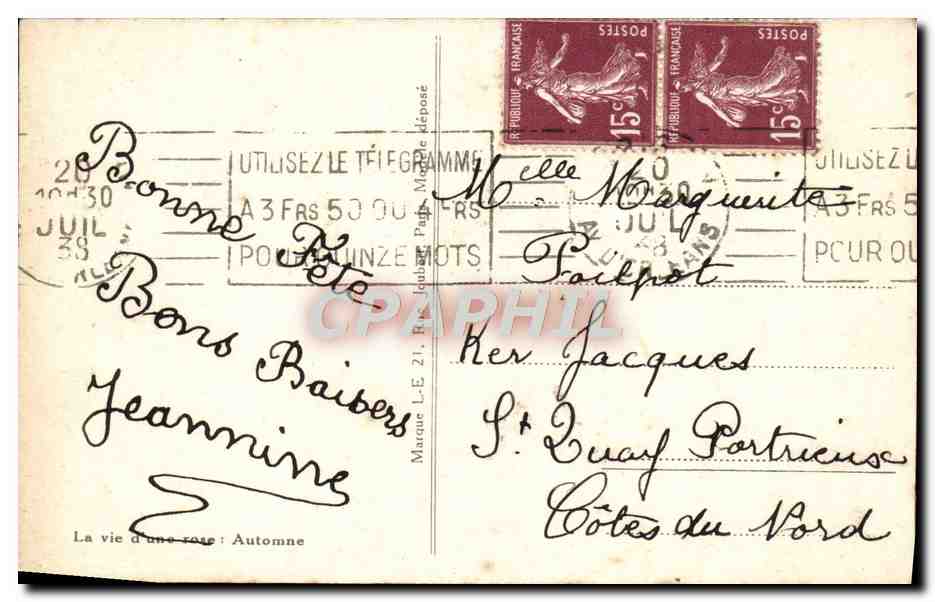 Bonne Fête
Bons Baisers
Jeannine
La vie d'une rose : Automne
Marque L-E 21, Paris déposé
REPUBLIQUE FRANÇAISE
POSTES
15c
REPUBLIQUE FRANÇAISE
POSTES
15c
20
10H30
JUIL
38
UTILISEZ LE TÉLÉGRAMME
A 3 FRS 50 OU 4 FRS
POUR QUINZE MOTS
JUIL
38
UTILISEZ L
A 3 FRS 5
POUR QU
Melle Marguerite
Poilpot
Ker Jacques
St Quay Portrieux
Côtes du Nord
CPAPHIL